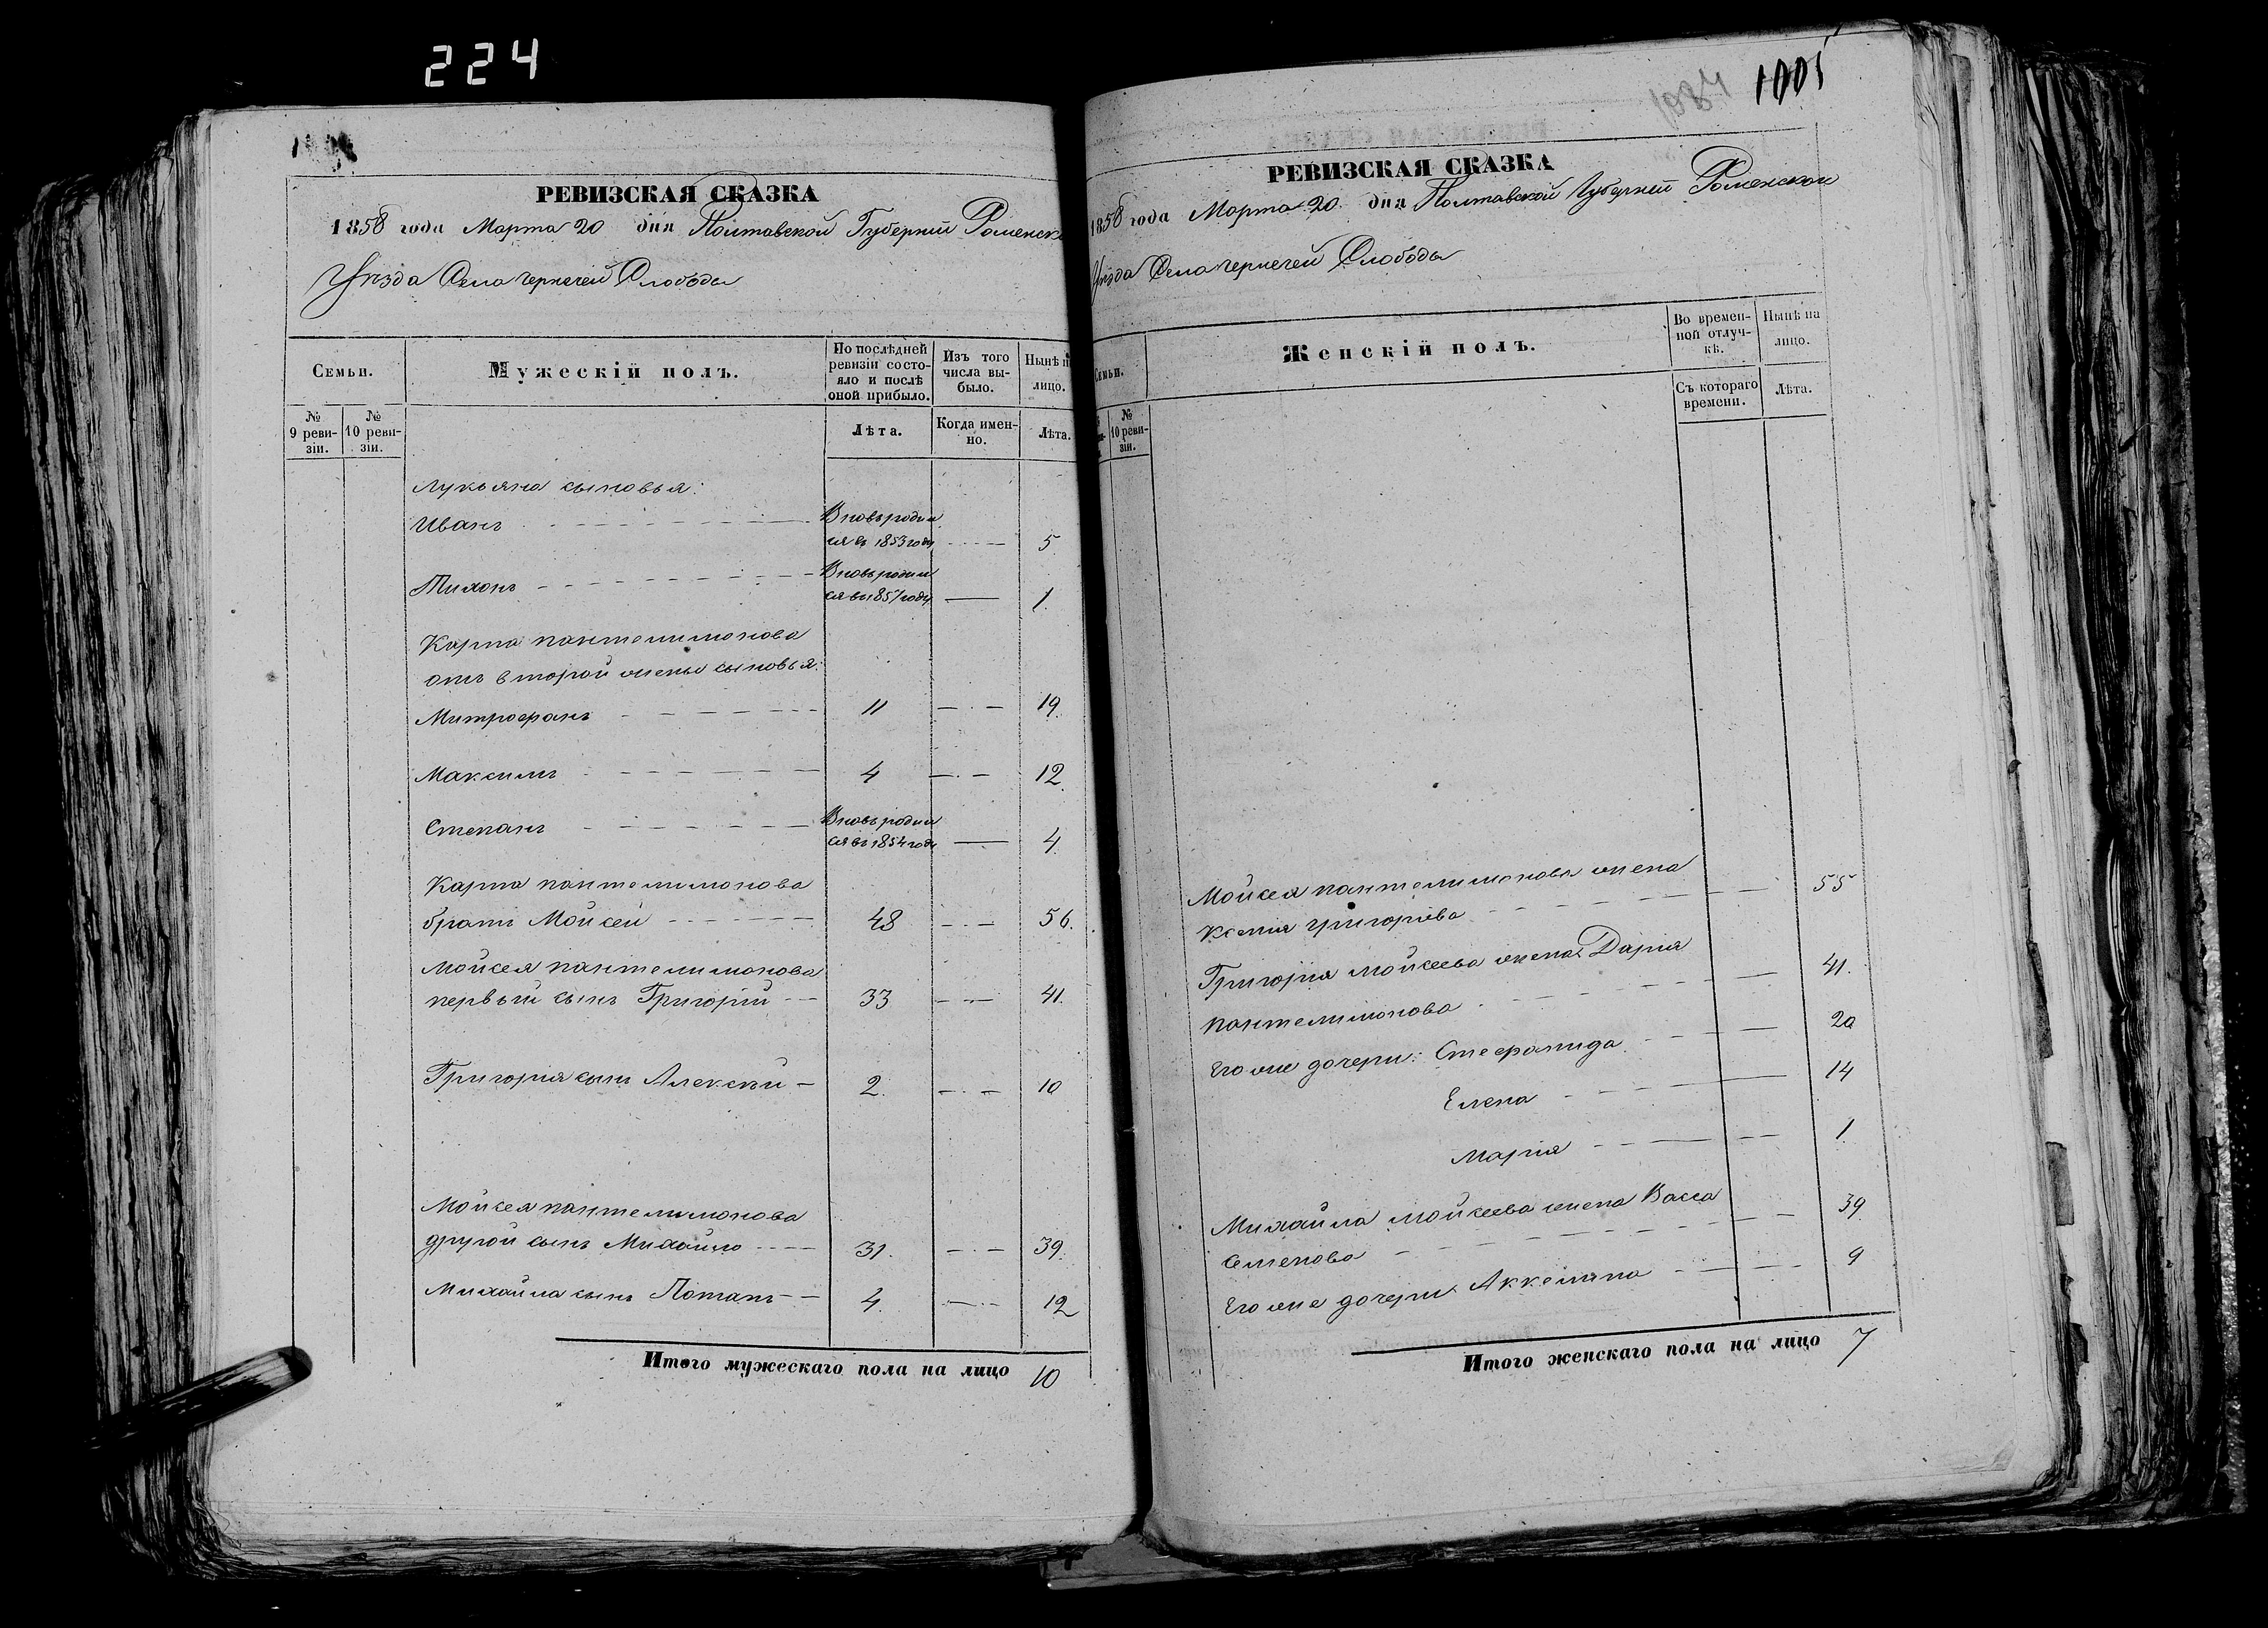 224
РЕВИЗСКАЯ СКАЗКА
1858 года Марта 20 дня Полтавской Губерніи Роменск
Уѣзда Села Чернечей Слободы
Семьи.
Мужескій полъ.
По послѣдней ревизіи состояло и послѣ оной прибыло.
Изъ того числа выбыло.
Нынѣ н лицо.
№ 9 ревизіи.
№ 10 ревизіи.
Лѣта.
Когда именно.
Лѣта.
Лукьяна сыновья:
Иванъ Вновь родил
ся въ 1853 году 5
Тихонъ Вновь родил
ся въ 1857 году 1.
Карпа Пантелимонова
отъ второй жены сыновья:
Митрофанъ 11 19.
Максимъ 4 12.
Степанъ Вновь родил
ся въ 1854 году 4.
Карпа Пантелимонова
братъ Мойсей 48 56.
Мойсея Пантелимонова
первый сынъ Григорій 33 41.
Григорія сынъ Алексѣй 2. 10
Мойсея Пантелимонова
другой сынъ Михайло 31. 39.
Михайла сынъ Потапъ 4. 12
Итого мужескаго пола на лицо 10
1034 1001
РЕВИЗСКАЯ СКАЗКА
1858 года Марта 20 дня Полтавской Губерніи Роменскаго
Уѣзда Села Чернечей Слободы
Семьи.
Женскій полъ.
Во временной отлучкѣ.
Нынѣ на лицо.
№ 10 ревизіи.
Съ котораго времени.
Лѣта.
Мойсея Пантелимонова жена
Ксенія Григоріева 55
Григорія Мойсеева жена Дарія
Пантелимонова 41.
Его же дочери: Стефанида 20
Елена 14
Марія 1.
Михайла Мойсеева жена Васса
Семенова 39.
Его же дочери Аккелина 9
Итого женскаго пола на лицо 7